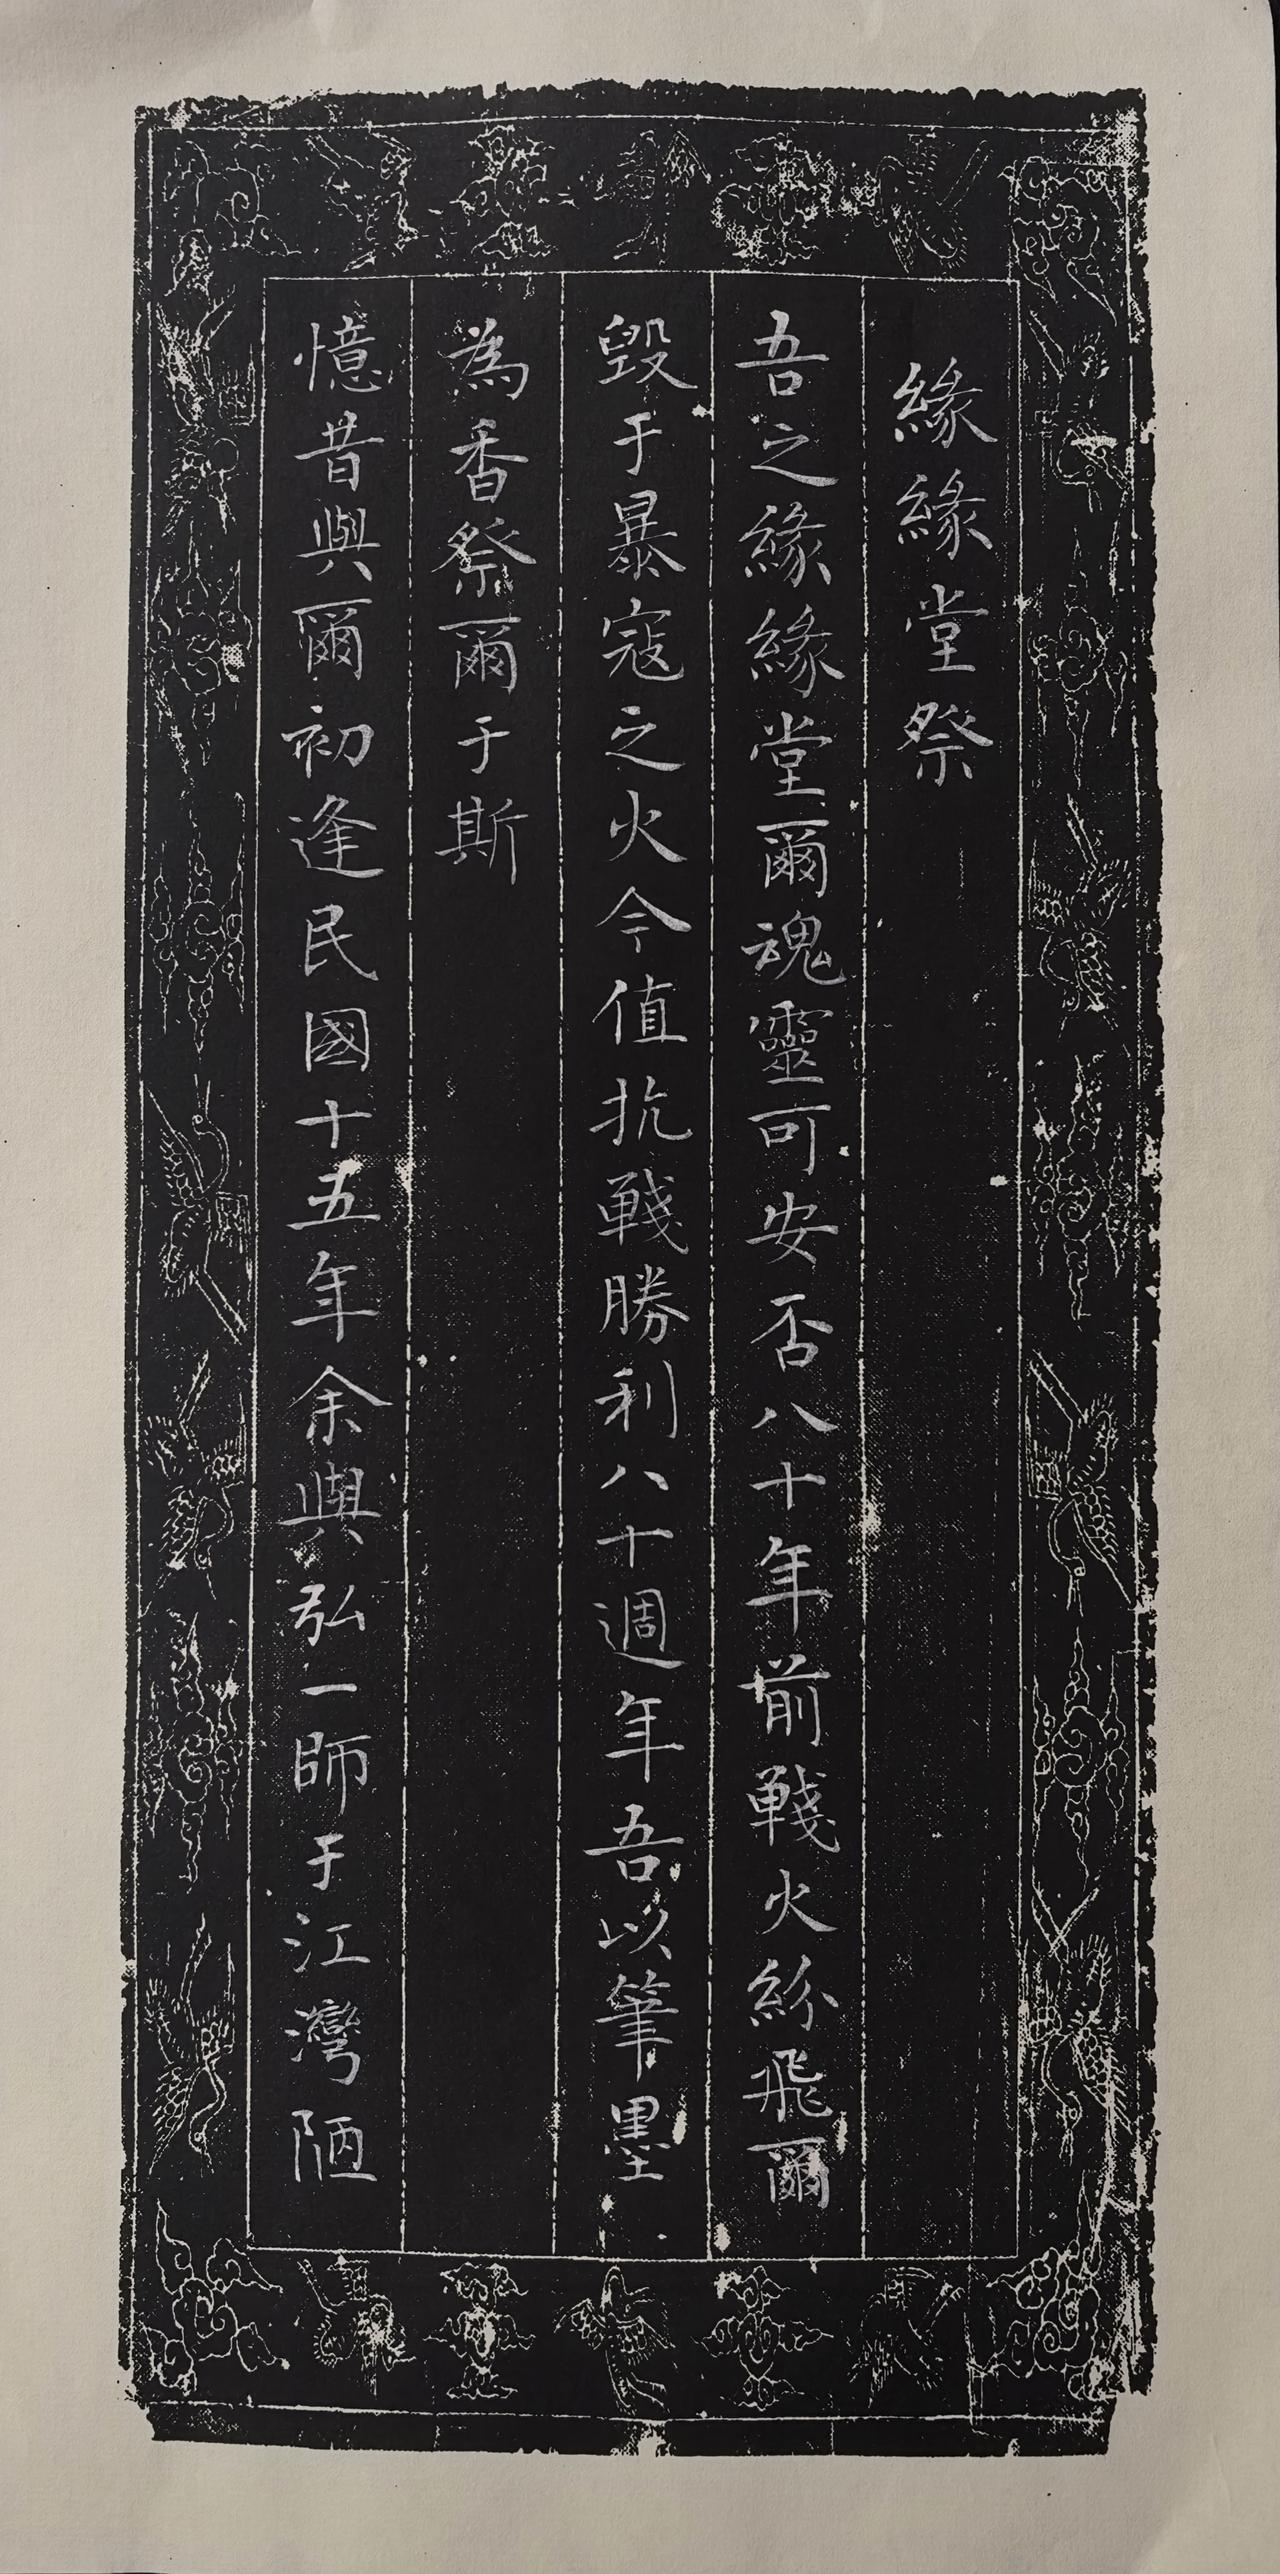 緣緣堂祭
吾之緣緣堂爾魂靈可安否八十年前戰火紛飛爾
毀于暴寇之火今值抗戰勝利八十週年吾以筆墨
為香祭爾于斯
憶昔與爾初逢民國十五年余與弘一師于江灣陋